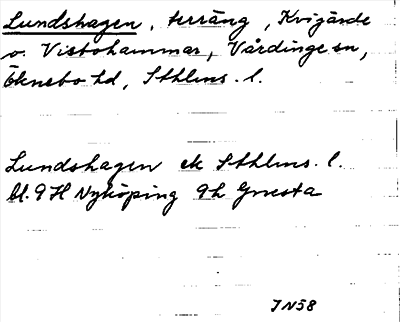 Lundshagen, terräng, Kvigärde
o. Visbohammar, Vårdinge sn,
Öknebo hd, Sthlms. l.
Lundshagen ek Sthlms. l.
bl. 9 H Nyköping 9h Gnesta
JN58